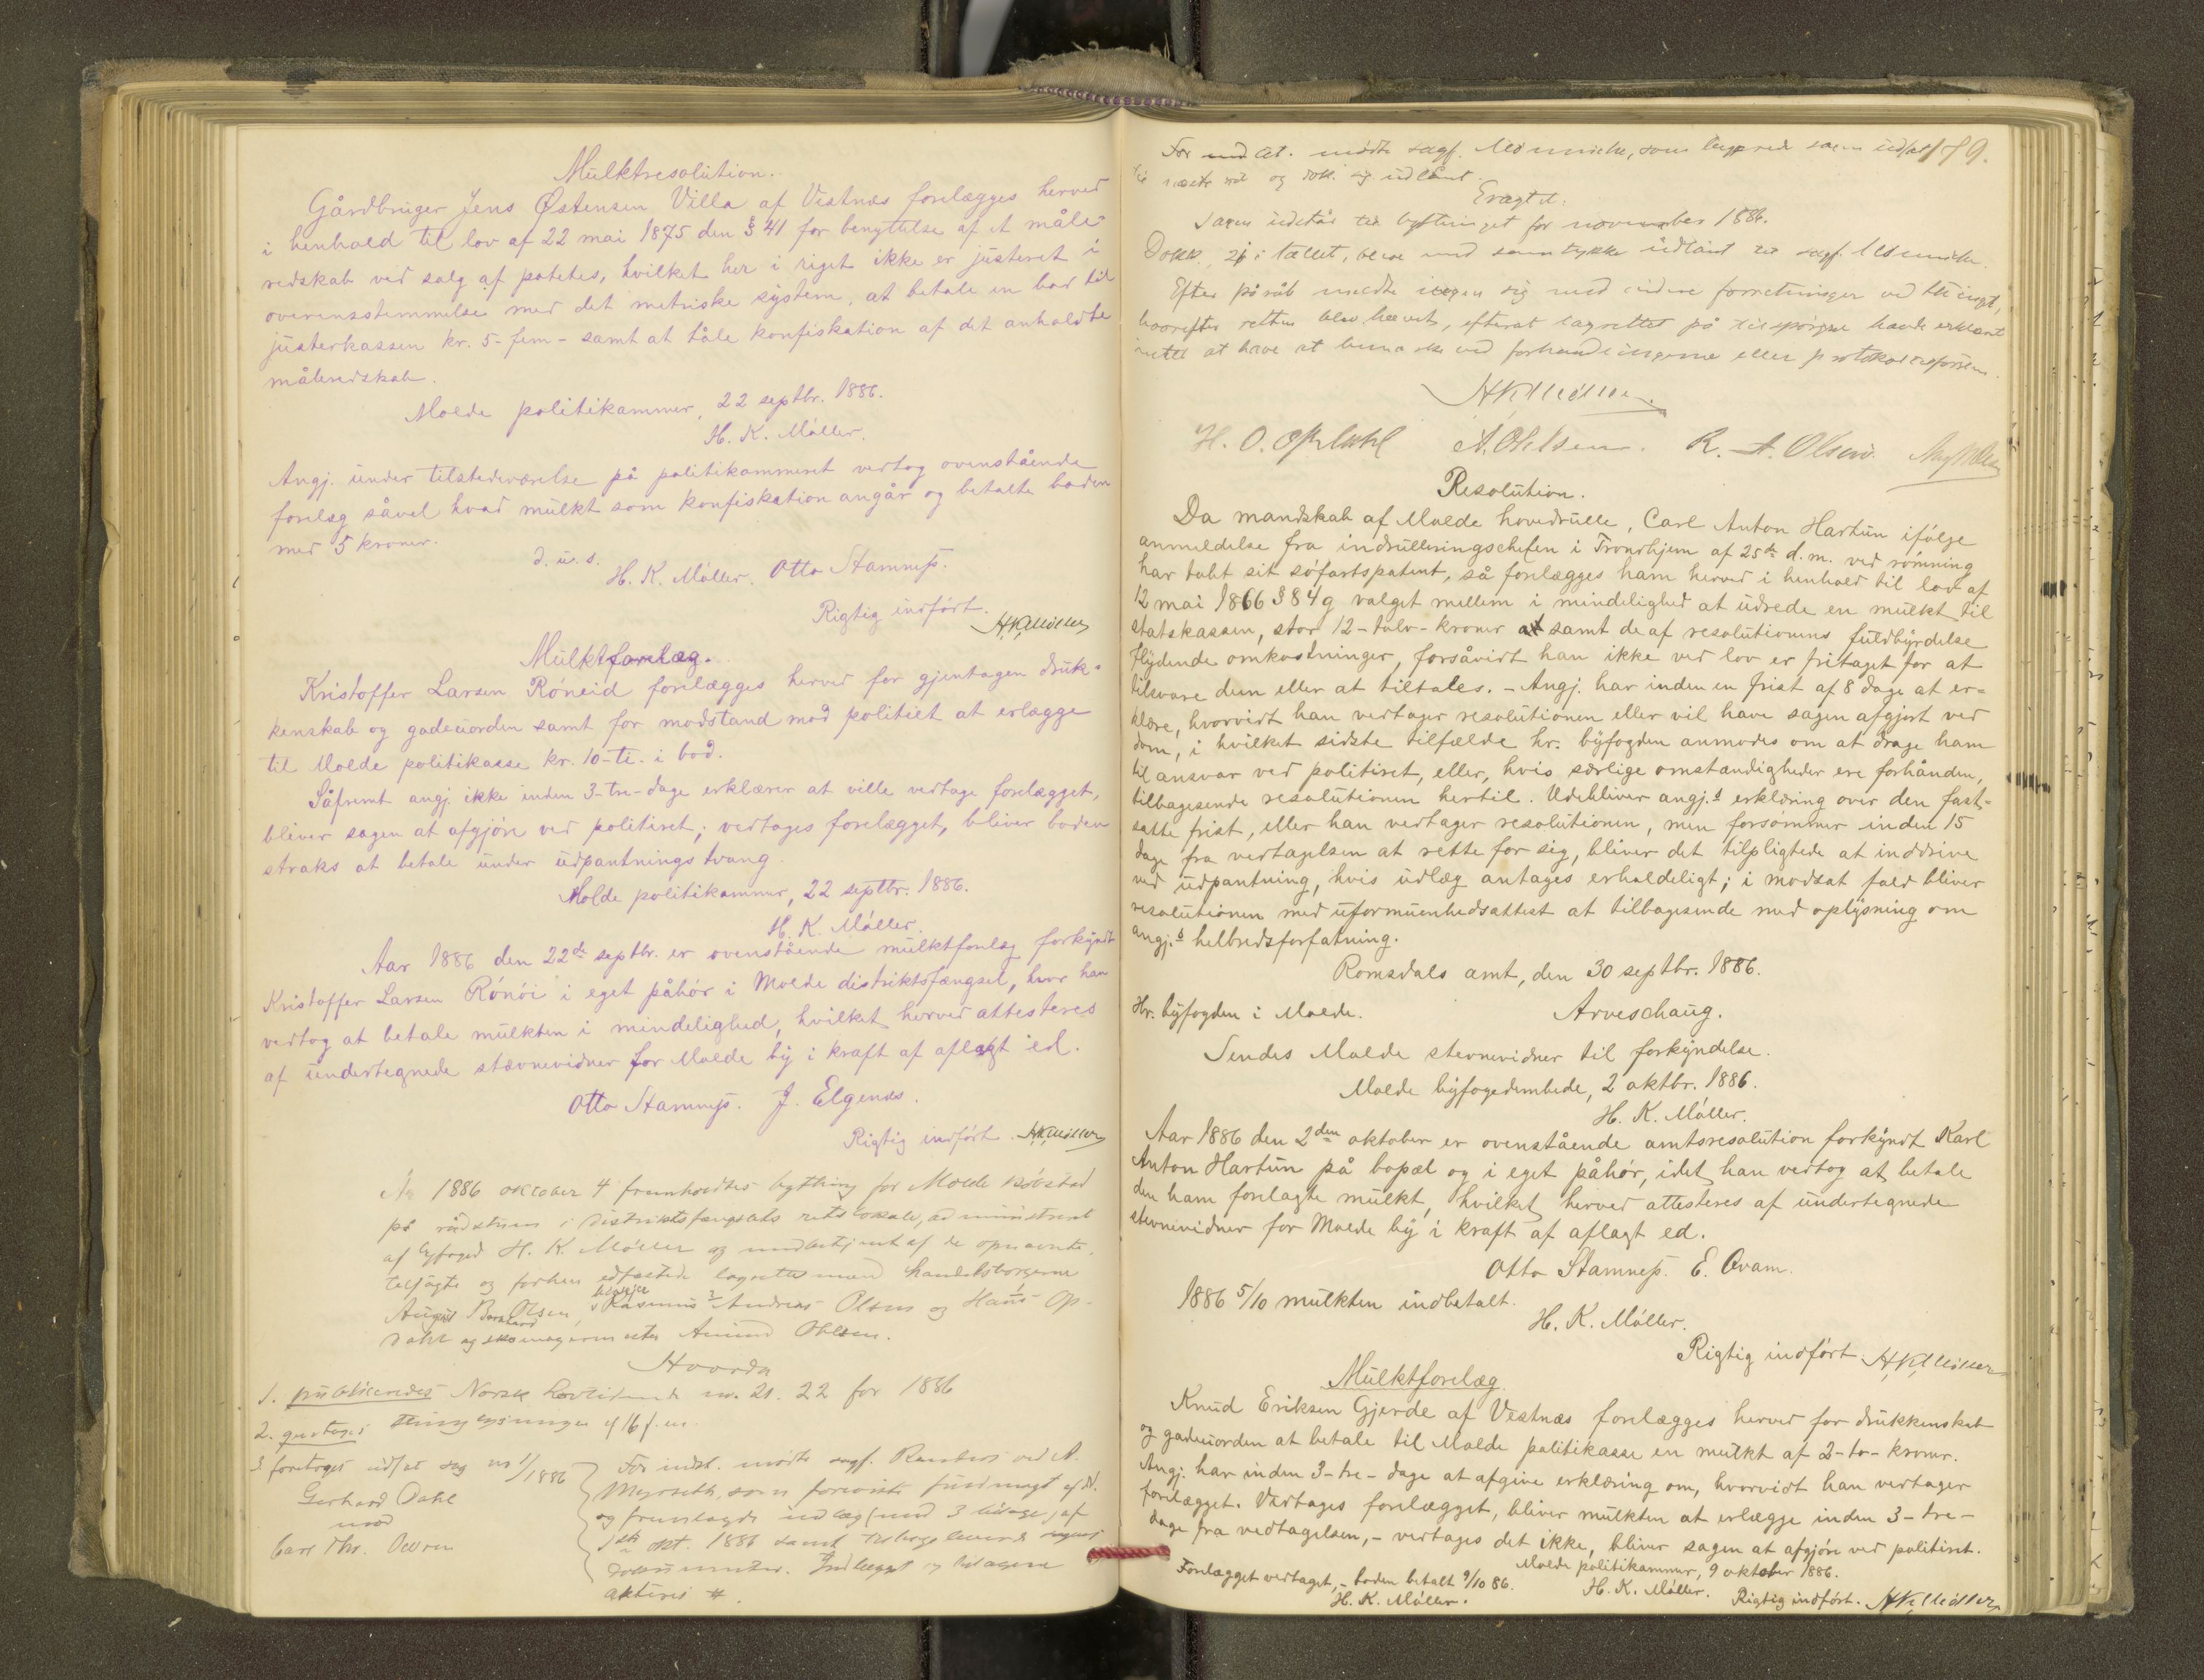 Mulktresolution.
Gårdbruger Jens Østensen Villa af Vestnæs forelægges herved
i henhold til lov af 22 mai 1875 den § 41 for benyttelse af et måle-
redskab ved salg af potetes, hvilket her i riget ikke er justeret i
overensstemmelse med det metriske system, at betale en bod til
justerkassen kr. 5 - fem - samt at tåle konfiskation af det anholdte
måleredskab.
Molde politikammer, 22 septbr. 1886.
H. K. Møller.
Angj. under tilstedeværelse på politikammeret vedtog ovenstående
forelæg såvel hvad mulkt som konfiskation angår og betalte boden
med 5 kroner.
d. u. s.
H. K. Møller. Otto Stamnes.
Rigtig indført.
HKMøller
Mulktforelæg.
Kristoffer Larsen Röneid forelægges herved for gjentagen druk-
kenskab og gadeuorden samt for modstand mod politiet at erlægge
til Molde politikasse kr. 10 - ti - i bod.
Såfremt angj. ikke inden 3 - tre - dage erklærer at ville vedtage forelægget,
bliver sagen at afgjøre ved politiret; vedtages forelægget, bliver boden
straks at betale under udpantningstvang.
Molde politikammer, 22 septbr. 1886.
H. K. Møller.
Aar 1886 den 22de septbr. er ovenstående mulktforelæg forkyndt
Kristoffer Larsen Rönöi i eget påhör i Molde distriktsfængsel, hvor han
vedtog at betale mulkten i mindelighed, hvilket herved attesteres
af undertegnede stævnevidner for Molde by i kraft af aflagt ed.
Otto Stamnes. J. Elgenes.
Rigtig indført. HKMøller
År 1886 oktober 4 fremholdtes bything for Molde købstad
på rådstuen i distriktsfængslets retslokale, administreret
af byfoged H. K. Møller og medbetjent af de opnævnte,
tilsagte og forhen edfæstede lagrettesmænd handelsborgerne
August Olsen, Rasmus Andreas Olsen og Hans Op-
dahl og skomagermester Amund Ohlsen.
Hvorda
1. publiceredes Norsk Lovtidende no. 21. 22 for 1886
2. thinglæsninger
3. foretoges udsat sag no 1/1886
Gerhard Dahl
mod
Carl Thr.
For indst. mødte sagf. ved A.
Myrseth, som foreviste fuldmagt
og fremlagde indlæg (med 3 bilage) af
1ste okt. 1886 samt tilbageleverede sagens
dokumenter. Indlægget og bilagene
akteres #.
79.
For indct. mødte sagf. som begjærede sagen udsat
til næste ret og dok. sig udlånt.
Eragtet:
Sagen udstår til bythinget for november 1886.
Dokk., 21 i tallet, bleve med samtykke udlånt til sagf.
Efter påråb meldte ingen sig med videre forretninger ved thinget,
hvorefter retten blev hævet, efterat lagrettet på tilspørgsel havde erklæret
intet at have at bemærke ved forhandlingerne eller protokoltilførslen.
HKMøller.
H. O. Opdahl A. Ohlsen. R. A. Olsen.
Resolution.
Da mandskab af Molde hovedrulle, Carl Anton Hartun ifølge
anmeldelse fra indrulleringschefen i Trondhjem af 25de d. m. ved römning
har tabt sit söfartspatent, så forelægges ham herved i henhold til lov af
12 mai 1866 § 84 g valget mellem i mindelighed at udrede en mulkt til
statskassen, stor 12 - tolv - kroner samt de af resolutionens fuldbyrdelse
flydende omkostninger, forsåvidt han ikke ved lov er fritaget for at
tilsvare dem eller at tiltales. - Angj. har inden en frist af 8 dage at er-
klære, hvorvidt han vedtager resolutionen eller vil have sagen afgjort ved
dom, i hvilket sidste tilfælde hr. byfogden anmodes om at drage ham
til ansvar ved politiret, eller, hvis særlige omstændigheder ere forhånden,
tilbagesende resolutionen hertil. Udebliver angj.s erklæring over den fast-
satte frist, eller han vedtager resolutionen, men forsömmer inden 15
dage fra vedtagelsen at rette for sig, bliver det tilpligtede at inddrive
ved udpantning, hvis udlæg antages erholdeligt; i modsat fald bliver
resolutionen med uformuenhedsattest at tilbagesende med oplysning om
angj.s helbredsforfatning.
Romsdals amt, den 30 septbr. 1886.
Hr. byfogden i Molde.
Arveschaug.
Sendes Molde stevnevidner til forkyndelse.
Molde byfogedembede, 2 oktbr. 1886.
H. K. Møller.
Aar 1886 den 2den oktober er ovenstående amtsresolution forkyndt Karl
Anton Hartun på bopæl og i eget påhör, idet han vedtog at betale
den ham forelagte mulkt, hvilket herved attesteres af undertegnede
stevnevidner for Molde by i kraft af aflagt ed.
Otto Stamnes. E. Qvam.
1886 5/10 mulkten indbetalt.
H. K. Møller.
Rigtig indført. HKMøller
Mulktforelæg.
Knud Eriksen Gjerde af Vestnæs forelægges herved for drukkenskab
og gadeuorden at betale til Molde politikasse en mulkt af 2 - to - kroner.
Angj. har inden 3 - tre - dage at afgive erklæring om, hvorvidt han vedtager
forelægget. Vedtages forelægget, bliver mulkten at erlægge inden 3 - tre -
dage fra vedtagelsen, - vedtages det ikke, bliver sagen at afgjöre ved politiret.
Molde politikammer, 9 oktober 1886.
Forelægget vedtaget, - boden betalt 9/10 86.
H. K. Møller.
H. K. Møller. Rigtig indført. HKMøller